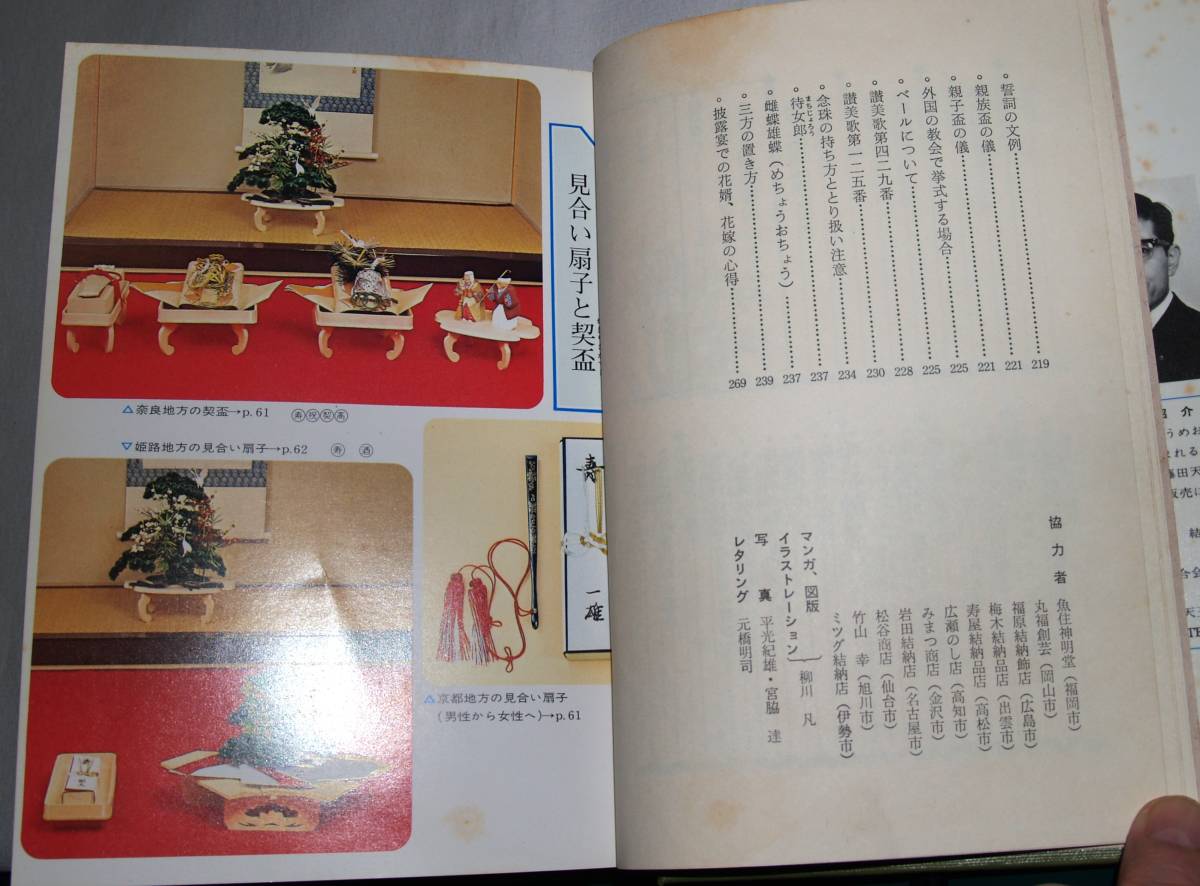 誓詞の文例 219
親族盃の儀 221
親子盃の儀 221
外国の教会で挙式する場合 225
ベールについて 225
讃美歌第四二九番 228
讃美歌第一二五番 230
念珠の持ち方ととり扱い注意 234
待女郎 まちじょろう 237
雌蝶雄蝶(めちょうおちょう) 237
三方の置き方 239
披露宴での花婿、花嫁の心得 269
協力者
魚住神明堂(福岡市)
丸福創芸(岡山市)
福原結納飾店(広島市)
梅木結納品店(出雲市)
寿屋結納品店(高松市)
広瀬のし店(高知市)
みまつ商店(金沢市)
岩田結納店(名古屋市)
松谷商店(仙台市)
竹山 幸(旭川市)
ミツグ結納店(伊勢市)
マンガ、図版
イラストレーション
柳川 凡
写真 平光紀雄・宮脇 達
レタリング 元橋明司
見合い扇子と契盃
△奈良地方の契盃→p.61 寿 祝 契 高
▽姫路地方の見合い扇子→p.62 寿 酒
寿
一雄
△京都地方の見合い扇子
(男性から女性へ)→p.61
紹介
うめお
まれる
藤田天
販売に
結
合会
天